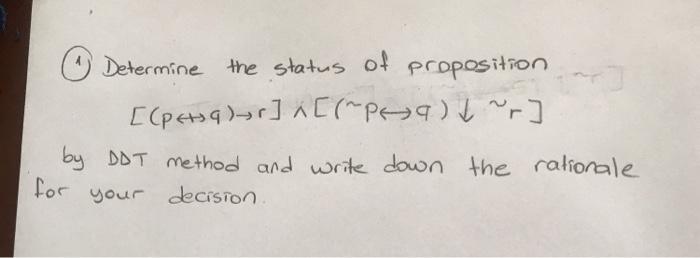 ① Determine the status of proposition
[(p↔q)→r] ∧ [(~p↔q) ↓ ~r]
by DDT method and write down the rationale
for your decision.